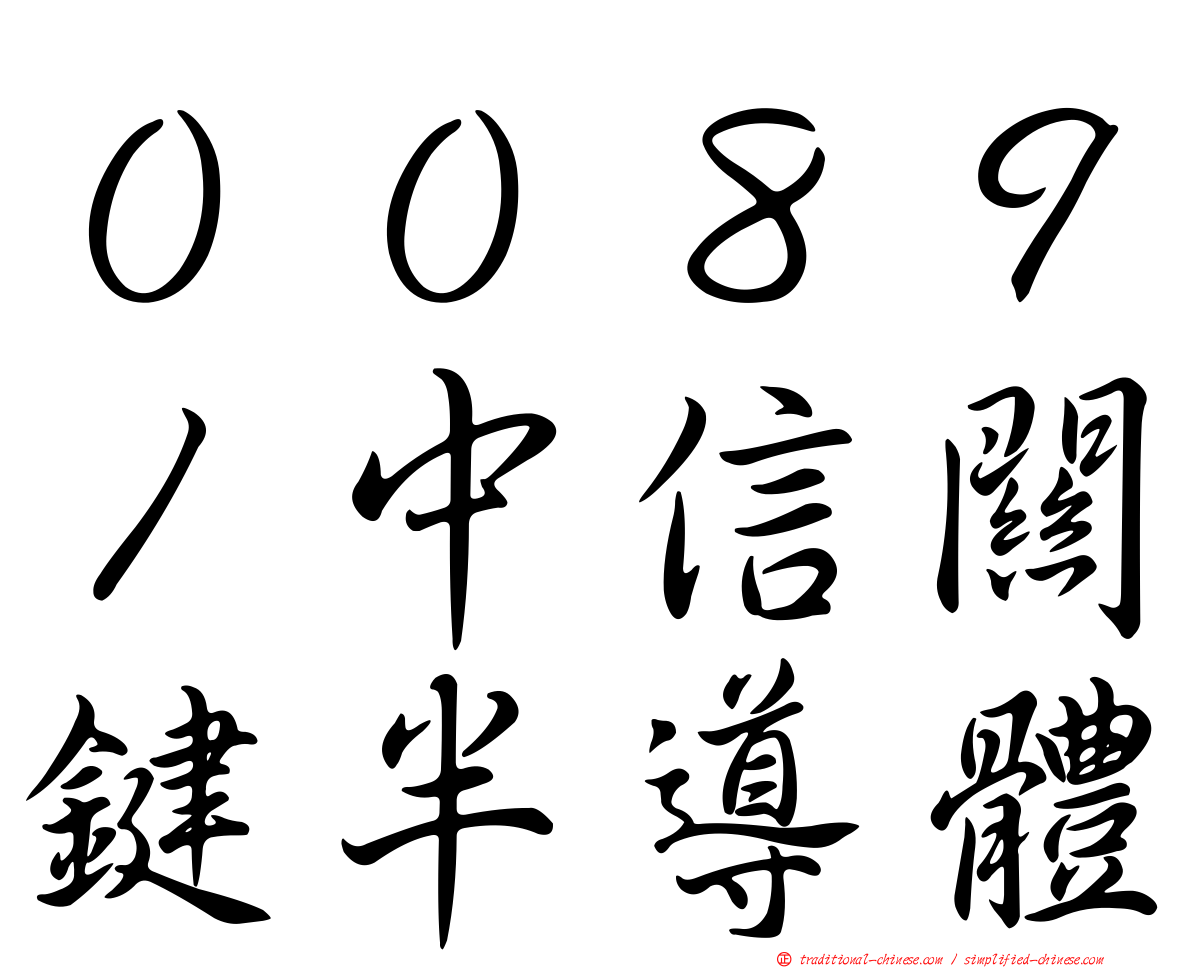 0089
1中信關
鍵半導體
正 traditional-chinese.com / simplified-chinese.com